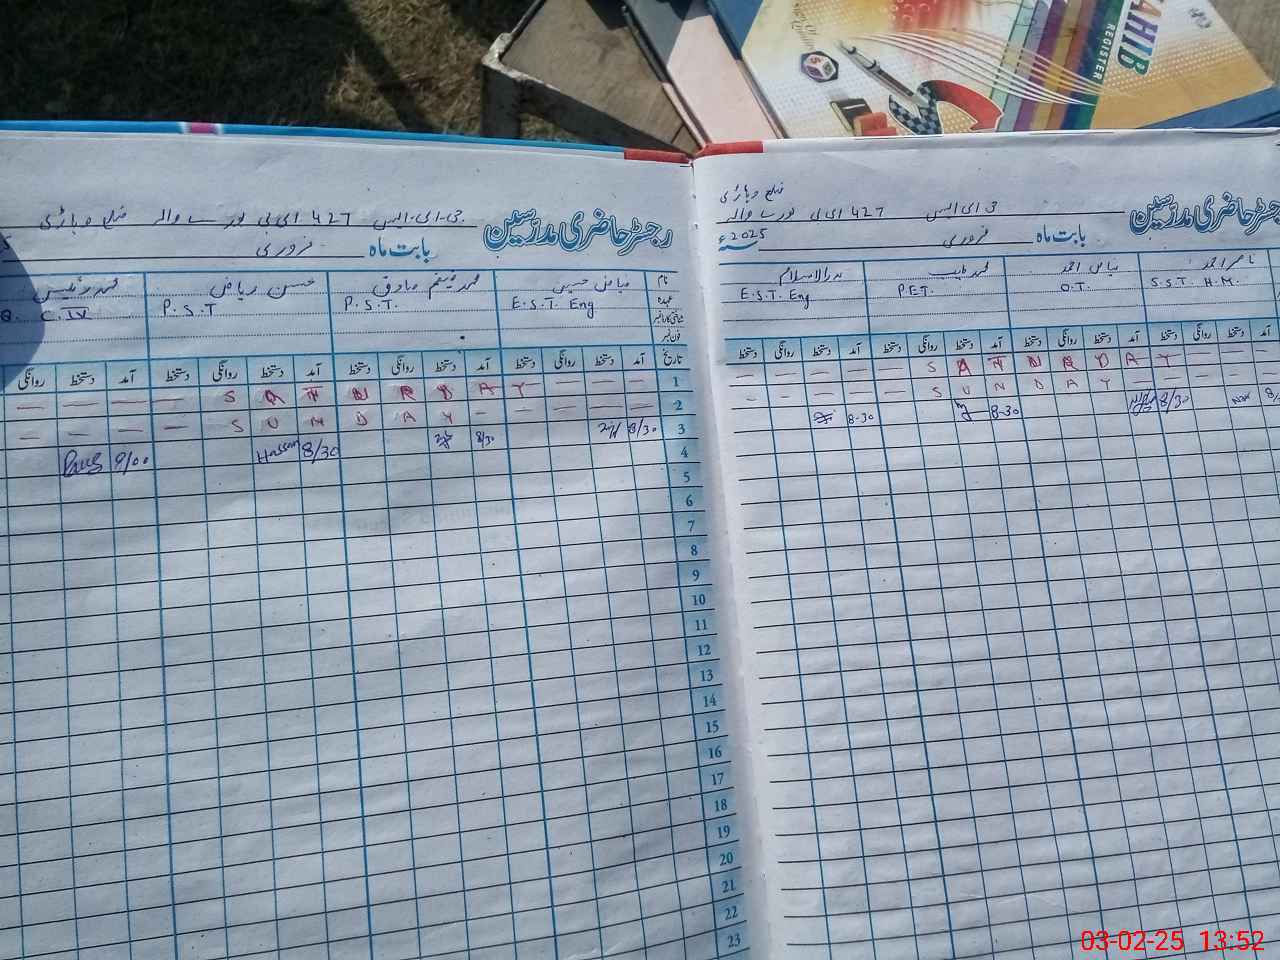 AHIB
REGISTER
ضلع وہاڑی
رجسٹر حاضری مدرسین
جی ای ایس 427 ای بی نور سے والہ
2025ء
بابت ماہ فروری
ناصر احمد
ریاض احمد
محمد طیب
بدرالاسلام
S.S.T. H.M.
O.T.
P.E.T.
E.S.T. Eng
دستخط روانگی دستخط آمد دستخط روانگی دستخط آمد دستخط روانگی دستخط آمد دستخط روانگی دستخط
S A T U R D A Y
S U N D A Y
8-30 8-30 8/30
رجسٹر حاضری مدرسین
جی.ای.ایس 427 ای بی نور سے والہ ضلع وہاڑی
بابت ماہ فروری
نام
ریاض حسین
محمد وسیم صادق
حسن ریاض
محمد رئیس
عہدہ
E.S.T. Eng
P.S.T.
P.S.T
C.IV
فون نمبر
تاریخ آمد دستخط روانگی دستخط آمد دستخط روانگی دستخط آمد دستخط روانگی دستخط آمد دستخط روانگی
1 S A T U R D A Y
2 S U N D A Y
3 8/30 8/30 Hassan 8/30 9/00
4
5
6
7
8
9
10
11
12
13
14
15
16
17
18
19
20
21
22
23
03-02-25 13:52